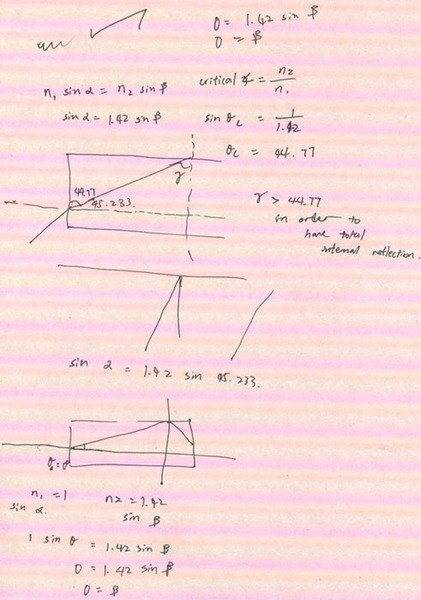 0 = 1.42 sin β
0 = β
n₁ sin α = n₂ sin β
sin α = 1.42 sin β
critical = n₂/n₁
sin θc = 1/1.42
θc = 44.77
γ
44.77
45.233
γ > 44.77
in order to
have total
internal reflection.
sin α = 1.42 sin 45.233.
n₁ = 1 n₂ = 1.42
sin α. sin β
1 sin θ = 1.42 sin β
0 = 1.42 sin β
0 = β